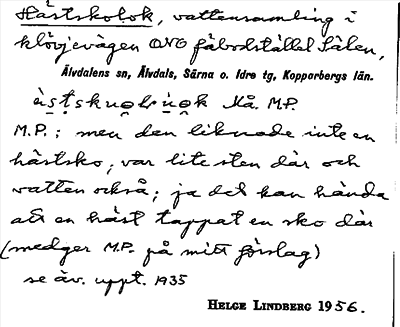 Hästskolok, vattensamling i
klövjevägen ONO fäbodstället Sälen,
Älvdalens sn, Älvdals, Särna o. Idre tg, Kopparbergs län.
M.P.
M.P.; men den liknade inte en
hästsko; var lite sten där och
vatten också; ja det kan hända
att en häst tappat en sko där
(medger M.P. på mitt förslag)
se äv. uppt. 1935
HELGE LINDBERG 1956.